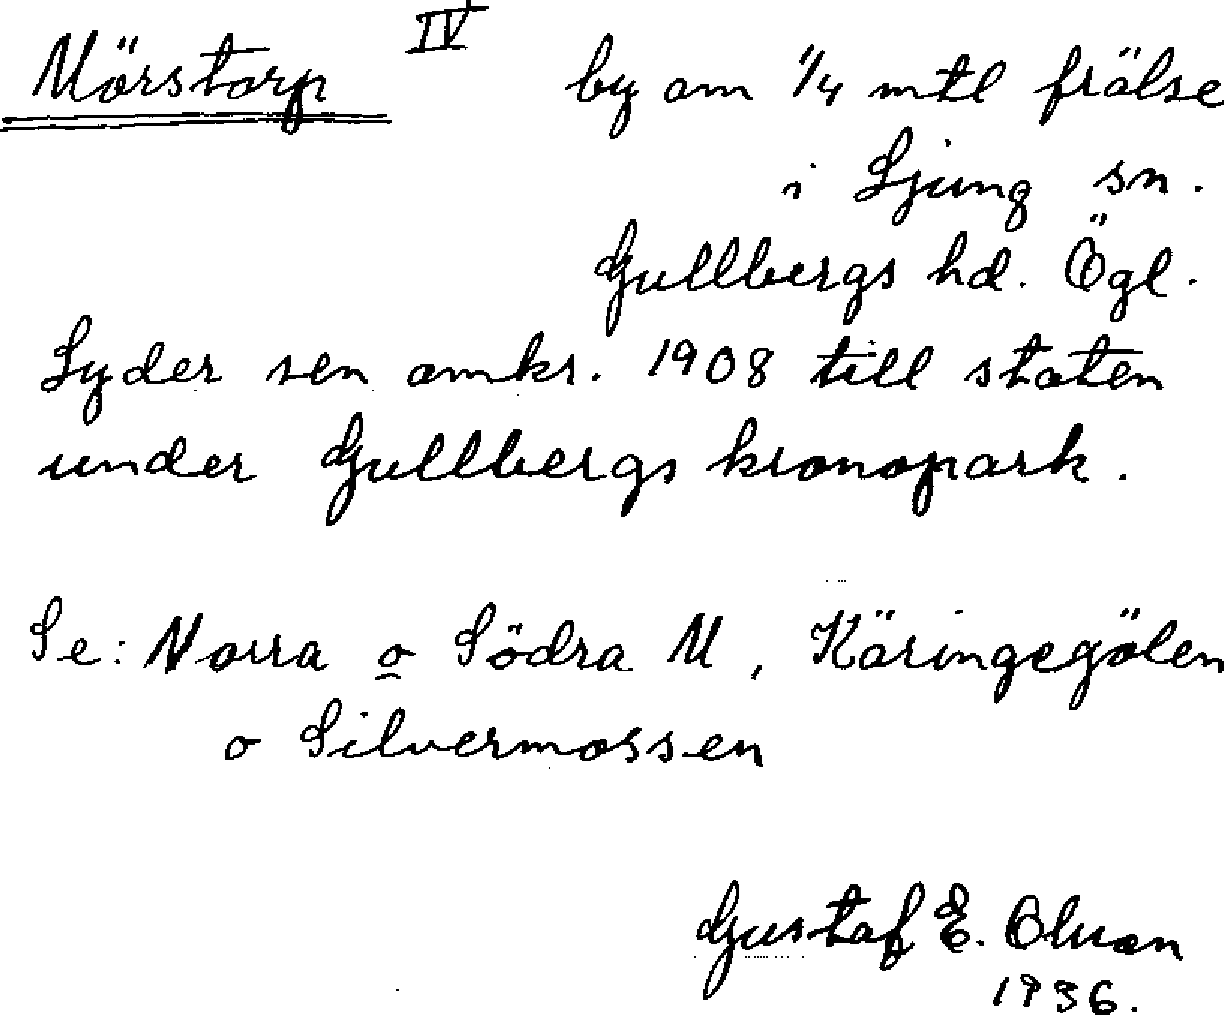 Mörstorp IV by om 1/4 mtl frälse
i Ljung sn.
Gullbergs hd. Ögl.
Lyder sen omkr. 1908 till staten
under Gullbergs kronopark.
Se: Norra o Södra M, Käringegölen
o Silvermossen
Gustaf E. Olsson
1936.